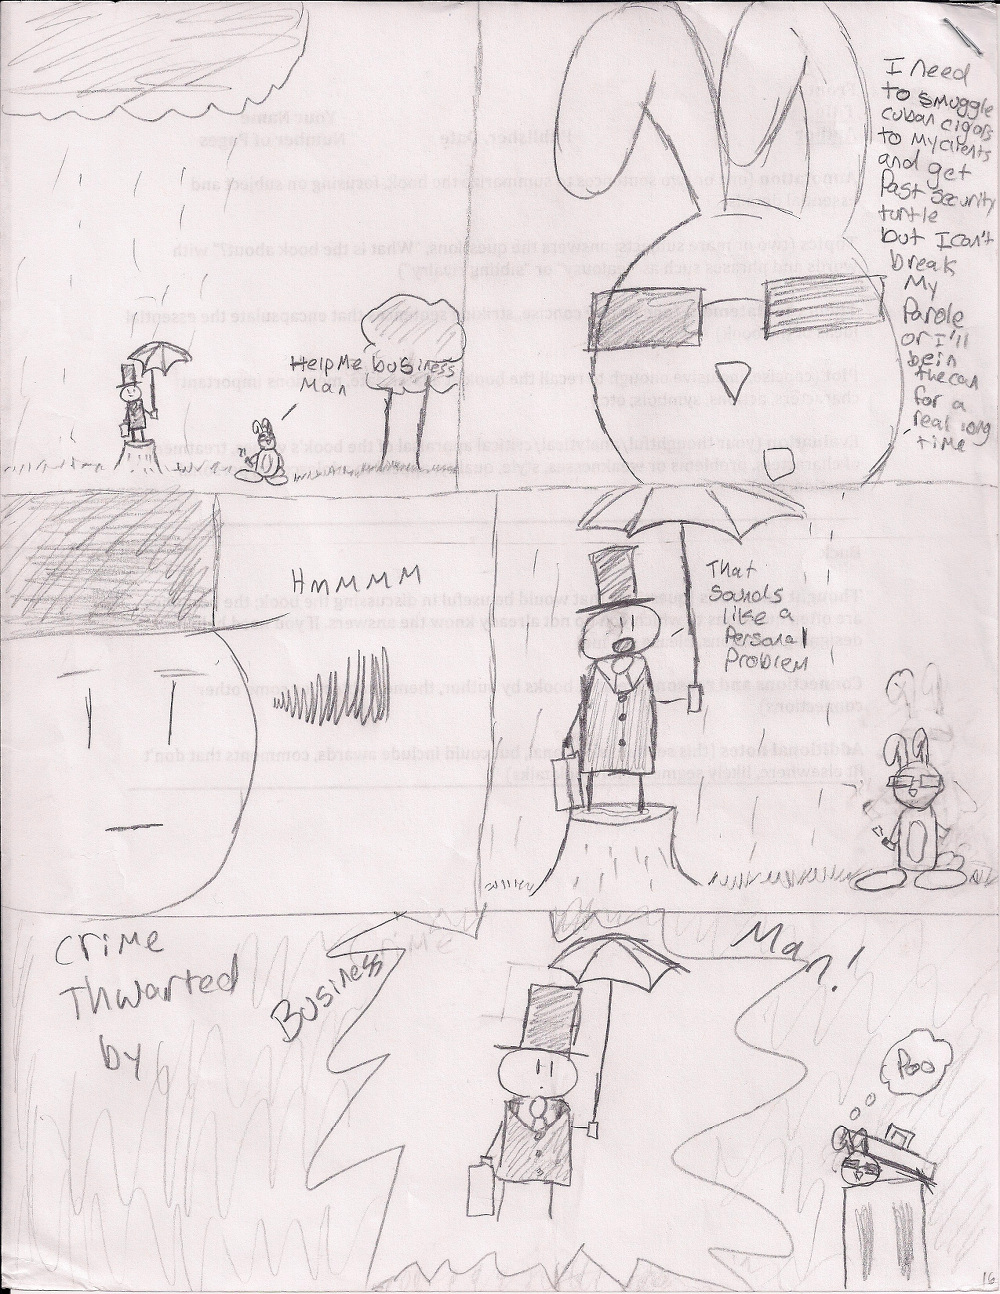 Help Me business
Man
I need
to smuggle
cuban cigars
to my clients
and get
Past security
turtle
but I can't
break
My
Parole
or I'll
be in
the can
for a
real long
time
HMMMM
That
Sounds
like a
Personal
Problem
Crime
Thwarted
by
Business
Man!
Poo
16